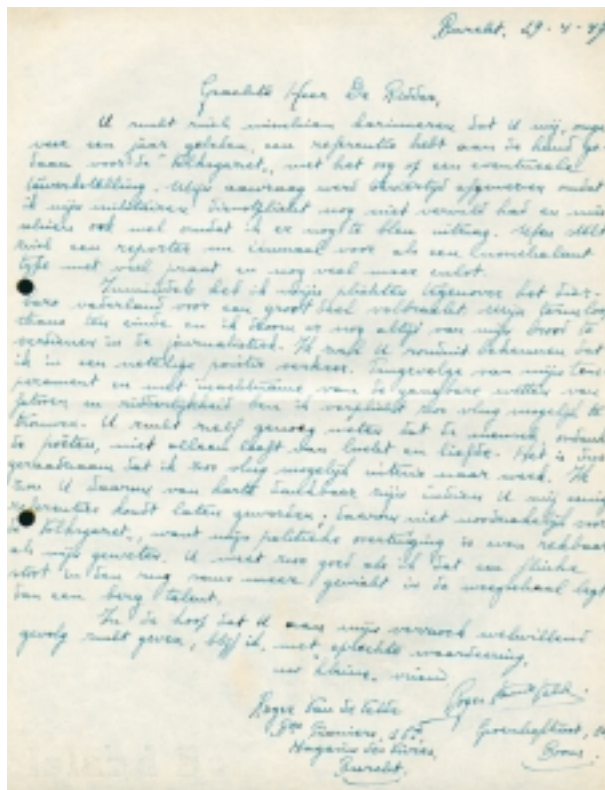 Burcht, 29-4-49
Geachte Heer De Ridder,
U zult zich misschien herinneren dat U mij, onge-
veer een jaar geleden, een referentie hebt aan de hand ge-
daan voor de "Volksgazet", met het oog op een eventuele
tewerkstelling. Mijn aanvraag werd destijds afgewezen omdat
ik mijn militairen dienstplicht nog niet vervuld had en mis-
schien ook wel omdat ik er nog te bleu uitzag. Men stelt
zich een reporter nu eenmaal voor als een nonchalant
type met veel praat en nog veel meer
Inmiddels heb ik mijn plichten tegenover het dier-
bare vaderland voor een groot deel volbracht. Mijn
thans ten einde en ik droom er nog altijd van mijn brood te
verdienen in de journalistiek. Ik zal U ronduit bekennen dat
ik in een netelige positie verkeer. Tengevolge van mijn tem-
perament en met inachtname van de gangbare wetten van
fatsoen en ridderlijkheid ben ik verplicht zoo vlug mogelijk te
trouwen. U zult zelf genoeg weten dat de mensch, ondanks
de poëten, niet alleen leeft van lucht en liefde. Het is dus
geraadzaam dat ik zoo vlug mogelijk uitzie naar werk. Ik
zou U daarom van harte dankbaar zijn indien U mij eenige
referenties zoudt laten geworden; daarom niet noodzakelijk voor
de "Volksgazet", want mijn politieke overtuiging is even rekbaar
als mijn geweten. U weet zoo goed als ik dat een flinke
stoot in den rug meer gewicht in de weegschaal legt
dan een berg talent.
In de hoop dat U aan mijn verzoek welwillend
gevolg zult geven, blijf ik, met oprechte waardeering,
uw "kleine" vriend
Roger Van de Velde
Pioniers,
Burcht.
Boom.